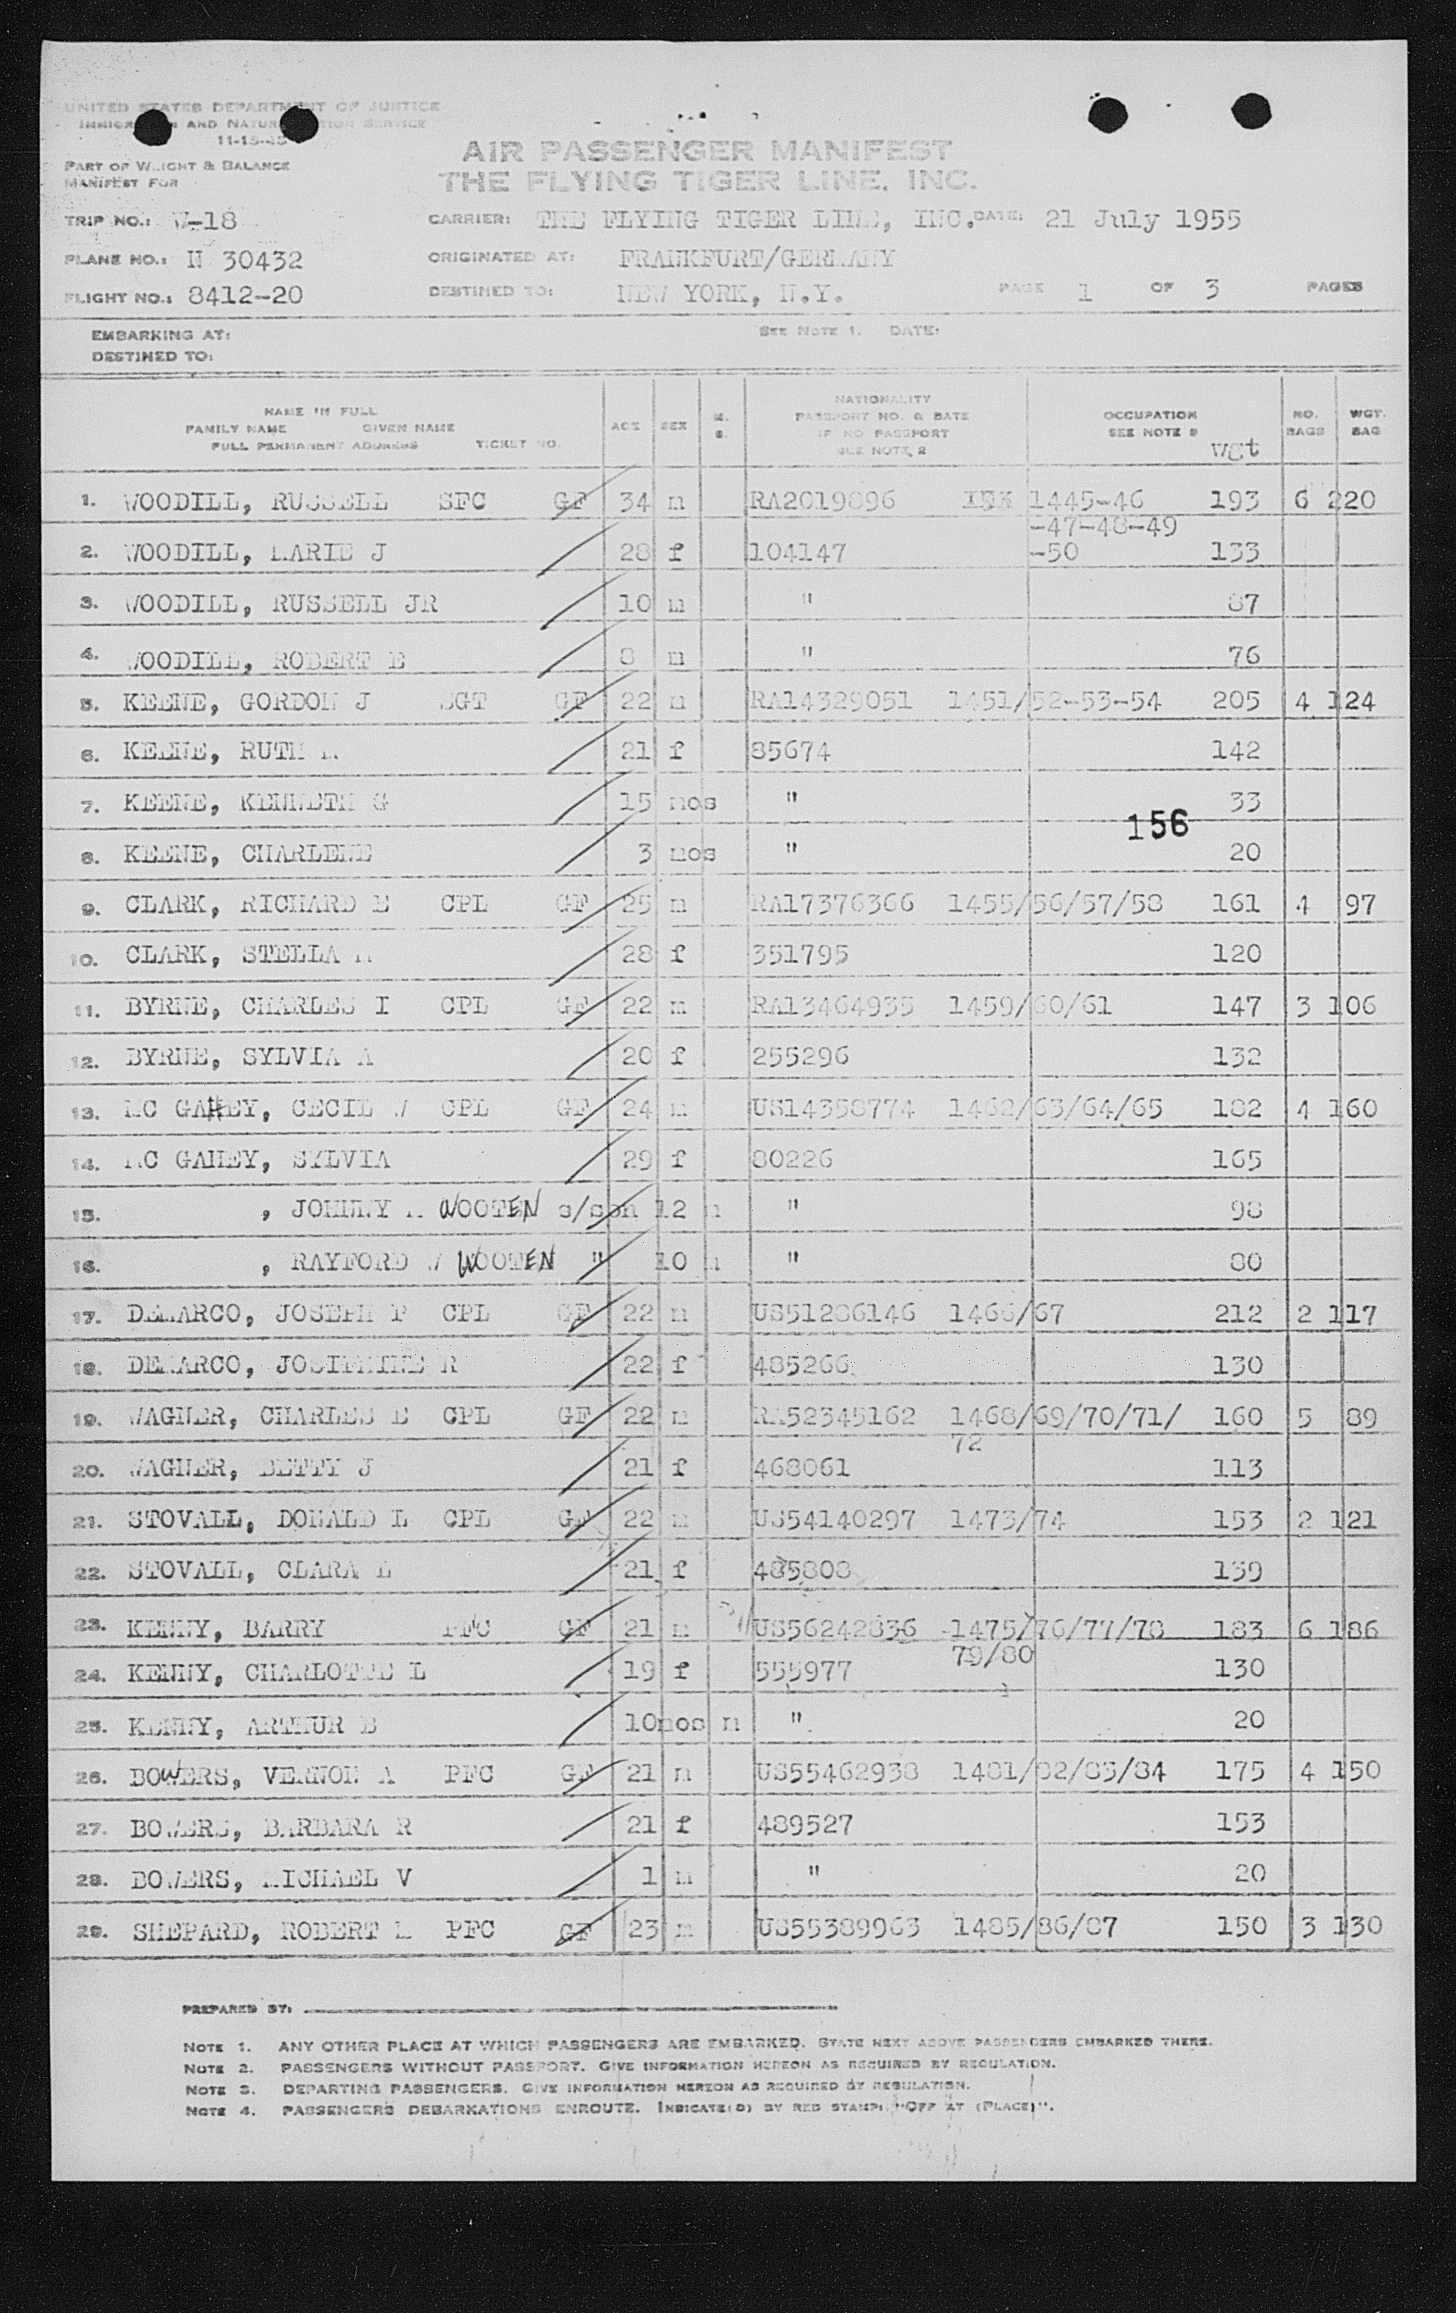 UNITED STATES DEPARTMENT OF JUSTICE
IMMIGRATION AND NATURALIZATION SERVICE
11-15-45
PART OF WEIGHT & BALANCE
MANIFEST FOR
AIR PASSENGER MANIFEST
THE FLYING TIGER LINE, INC.
TRIP NO.: W-18 CARRIER: THE FLYING TIGER LINE, INC. DATE: 21 July 1955
PLANE NO.: N 30432 ORIGINATED AT: FRANKFURT/GERMANY
FLIGHT NO.: 8412-20 DESTINED TO: NEW YORK, N.Y. PAGE 1 OF 3 PAGES
EMBARKING AT: SEE NOTE 1. DATE:
DESTINED TO:
NAME IN FULL
FAMILY NAME GIVEN NAME
FULL PERMANENT ADDRESS TICKET NO.
AGE SEX M. S.
NATIONALITY
PASSPORT NO. & DATE
IF NO PASSPORT
SEE NOTE 2
OCCUPATION
SEE NOTE 3
wgt
NO. BAGS
WGT. BAG
1. WOODILL, RUSSELL SFC GF 34 m RA2019896 1445-46 193 6 220
-47-48-49
2. WOODILL, MARIE J 28 f 104147 -50 133
3. WOODILL, RUSSELL JR 10 m " 87
4. WOODILL, ROBERT E 8 m " 76
5. KEENE, GORDON J SGT GF 22 m RA14329051 1451/52-53-54 205 4 124
6. KEENE, RUTH M 21 f 85674 142
7. KEENE, KENNETH G 15 mos " 33
156
8. KEENE, CHARLENE 3 mos " 20
9. CLARK, RICHARD E CPL GF 25 m RA17376366 1455/56/57/58 161 4 97
10. CLARK, STELLA 28 f 351795 120
11. BYRNE, CHARLES I CPL GF 22 m RA13464935 1459/60/61 147 3 106
12. BYRNE, SYLVIA A 20 f 255296 132
13. MC GAHEY, CECIL W CPL GF 24 m US14358774 1462/63/64/65 182 4 160
14. MC GAHEY, SYLVIA 29 f 80226 165
15. , JOHNNY M WOOTEN s/son 12 m " 98
16. , RAYFORD W WOOTEN " 10 m " 80
17. DEMARCO, JOSEPH P CPL GF 22 m US51286146 1466/67 212 2 117
18. DEMARCO, R 22 f 485266 130
19. WAGNER, CHARLES E CPL GF 22 m RA52345162 1468/69/70/71/ 160 5 89
72
20. WAGNER, BETTY J 21 f 468061 113
21. STOVALL, DONALD L CPL GF 22 m US54140297 1473/74 153 2 121
22. STOVALL, CLARA E 21 f 485808 139
23. KENNY, BARRY PFC GF 21 m US56242836 1475/76/77/78 183 6 186
79/80
24. KENNY, CHARLOTTE L 19 f 555977 130
25. KENNY, ARTHUR B 10mos m " 20
26. BOWERS, VERNON A PFC GF 21 m US55462938 1481/82/83/84 175 4 150
27. BOWERS, BARBARA R 21 f 489527 153
28. BOWERS, MICHAEL V 1 m " 20
29. SHEPARD, ROBERT M PFC GF 23 m US55389963 1485/86/87 150 3 130
PREPARED BY:
NOTE 1. ANY OTHER PLACE AT WHICH PASSENGERS ARE EMBARKED. STATE NEXT ABOVE PASSENGERS EMBARKED THERE.
NOTE 2. PASSENGERS WITHOUT PASSPORT. GIVE INFORMATION HEREON AS REQUIRED BY REGULATION.
NOTE 3. DEPARTING PASSENGERS. GIVE INFORMATION HEREON AS REQUIRED BY REGULATION.
NOTE 4. PASSENGERS DEBARKATIONS ENROUTE. INDICATE(D) BY RED STAMP: "OFF AT (PLACE)".